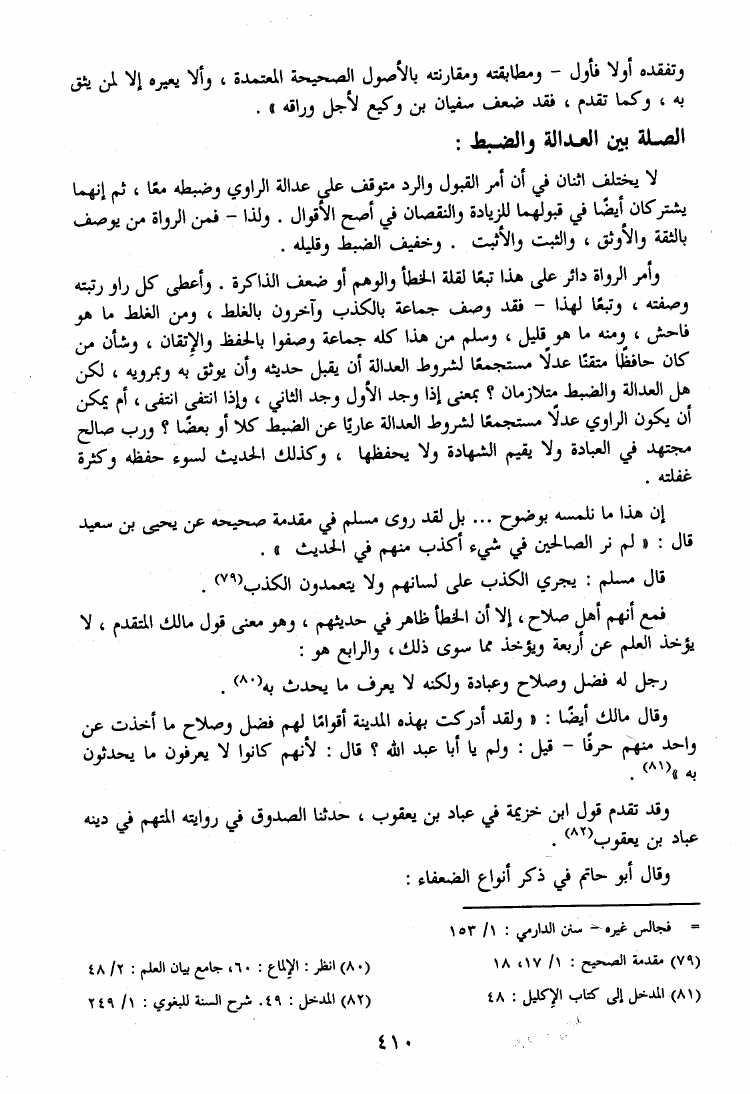 وتفقده أولا فأول – ومطابقته ومقارنته بالأصول الصحيحة المعتمدة ، وألا يعيره إلا لمن يثق
به ، وكما تقدم ، فقد ضعف سفيان بن وكيع لأجل وراقه » .
الصلة بين العدالة والضبط :
لا يختلف اثنان في أن أمر القبول والرد متوقف على عدالة الراوي وضبطه معًا ، ثم إنهما
يشتركان أيضًا في قبولهما للزيادة والنقصان في أصح الأقوال . ولذا – فمن الرواة من يوصف
بالثقة والأوثق ، والثبت والأثبت . وخفيف الضبط وقليله .
وأمر الرواة دائر على هذا تبعًا لقلة الخطأ والوهم أو ضعف الذاكرة . وأعطى كل راو رتبته
وصفته ، وتبعًا لهذا – فقد وصف جماعة بالكذب وآخرون بالغلط ، ومن الغلط ما هو
فاحش ، ومنه ما هو قليل ، وسلم من هذا كله جماعة وصفوا بالحفظ والإتقان ، وشأن من
كان حافظًا متقنًا عدلًا مستجمعًا لشروط العدالة أن يقبل حديثه وأن يوثق به وبمرويه ، لكن
هل العدالة والضبط متلازمان ؟ بمعنى إذا وجد الأول وجد الثاني ، وإذا انتفى انتفى ، أم يمكن
أن يكون الراوي عدلًا مستجمعًا لشروط العدالة عاريًا عن الضبط كلا أو بعضًا ؟ ورب صالح
مجتهد في العبادة ولا يقيم الشهادة ولا يحفظها ، وكذلك الحديث لسوء حفظه وكثرة
غفلته .
إن هذا ما نلمسه بوضوح ... بل لقد روى مسلم في مقدمة صحيحه عن يحيى بن سعيد
قال : « لم نر الصالحين في شيء أكذب منهم في الحديث » .
قال مسلم : يجري الكذب على لسانهم ولا يتعمدون الكذب(٧٩) .
فمع أنهم أهل صلاح ، إلا أن الخطأ ظاهر في حديثهم ، وهو معنى قول مالك المتقدم ، لا
يؤخذ العلم عن أربعة ويؤخذ مما سوى ذلك ، والرابع هو :
رجل له فضل وصلاح وعبادة ولكنه لا يعرف ما يحدث به(٨٠) .
وقال مالك أيضًا : « ولقد أدركت بهذه المدينة أقوامًا لهم فضل وصلاح ما أخذت عن
واحد منهم حرفًا – قيل : ولم يا أبا عبد الله ؟ قال : لأنهم كانوا لا يعرفون ما يحدثون
به »(٨١) .
وقد تقدم قول ابن خزيمة في عباد بن يعقوب ، حدثنا الصدوق في روايته المتهم في دينه
عباد بن يعقوب(٨٢) .
وقال أبو حاتم في ذكر أنواع الضعفاء :
= فجالس غيره – سنن الدارمي : ١/ ١٥٣
(٧٩) مقدمة الصحيح : ١/ ١٧، ١٨
(٨٠) انظر : الإلماع : ٦٠، جامع بيان العلم : ٢/ ٤٨
(٨١) المدخل إلى كتاب الإكليل : ٤٨
(٨٢) المدخل : ٤٩. شرح السنة للبغوي : ١/ ٢٤٩
٤١٠